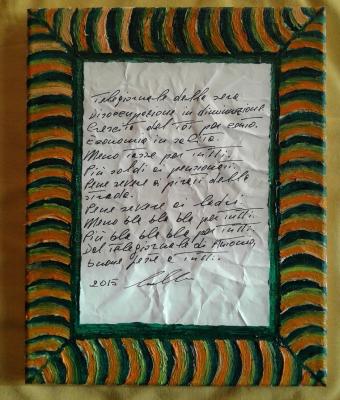 Telegiornale della sera
Disoccupazione in diminuzione
Crescita del Toi per cento.
Economia in salita.
Meno tasse per tutti.
Più soldi ai pensionati.
Pene severe ai pirati della
strada.
Pene severe ai ladri.
Meno bla bla bla per tutti.
Più bla bla bla per tutti.
Dal Telegiornale di
buone fette a tutti.
2015